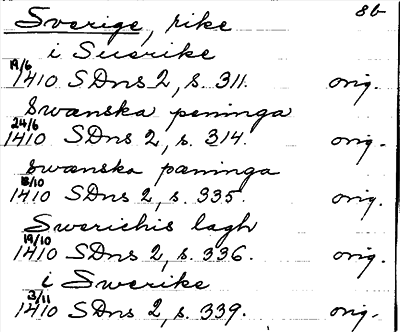 Sverige, rike 8b
i Suerike
19/6 1410 SDns 2, s. 311. orig.
Swanska peninga
24/6 1410 SDns 2, s. 314. orig.
swanska pæninga
18/10 1410 SDns 2, s. 335. orig.
Swerichis lagh
19/10 1410 SDns 2, s. 336. orig.
i Swerike
3/11 1410 SDns 2, s. 339. orig.